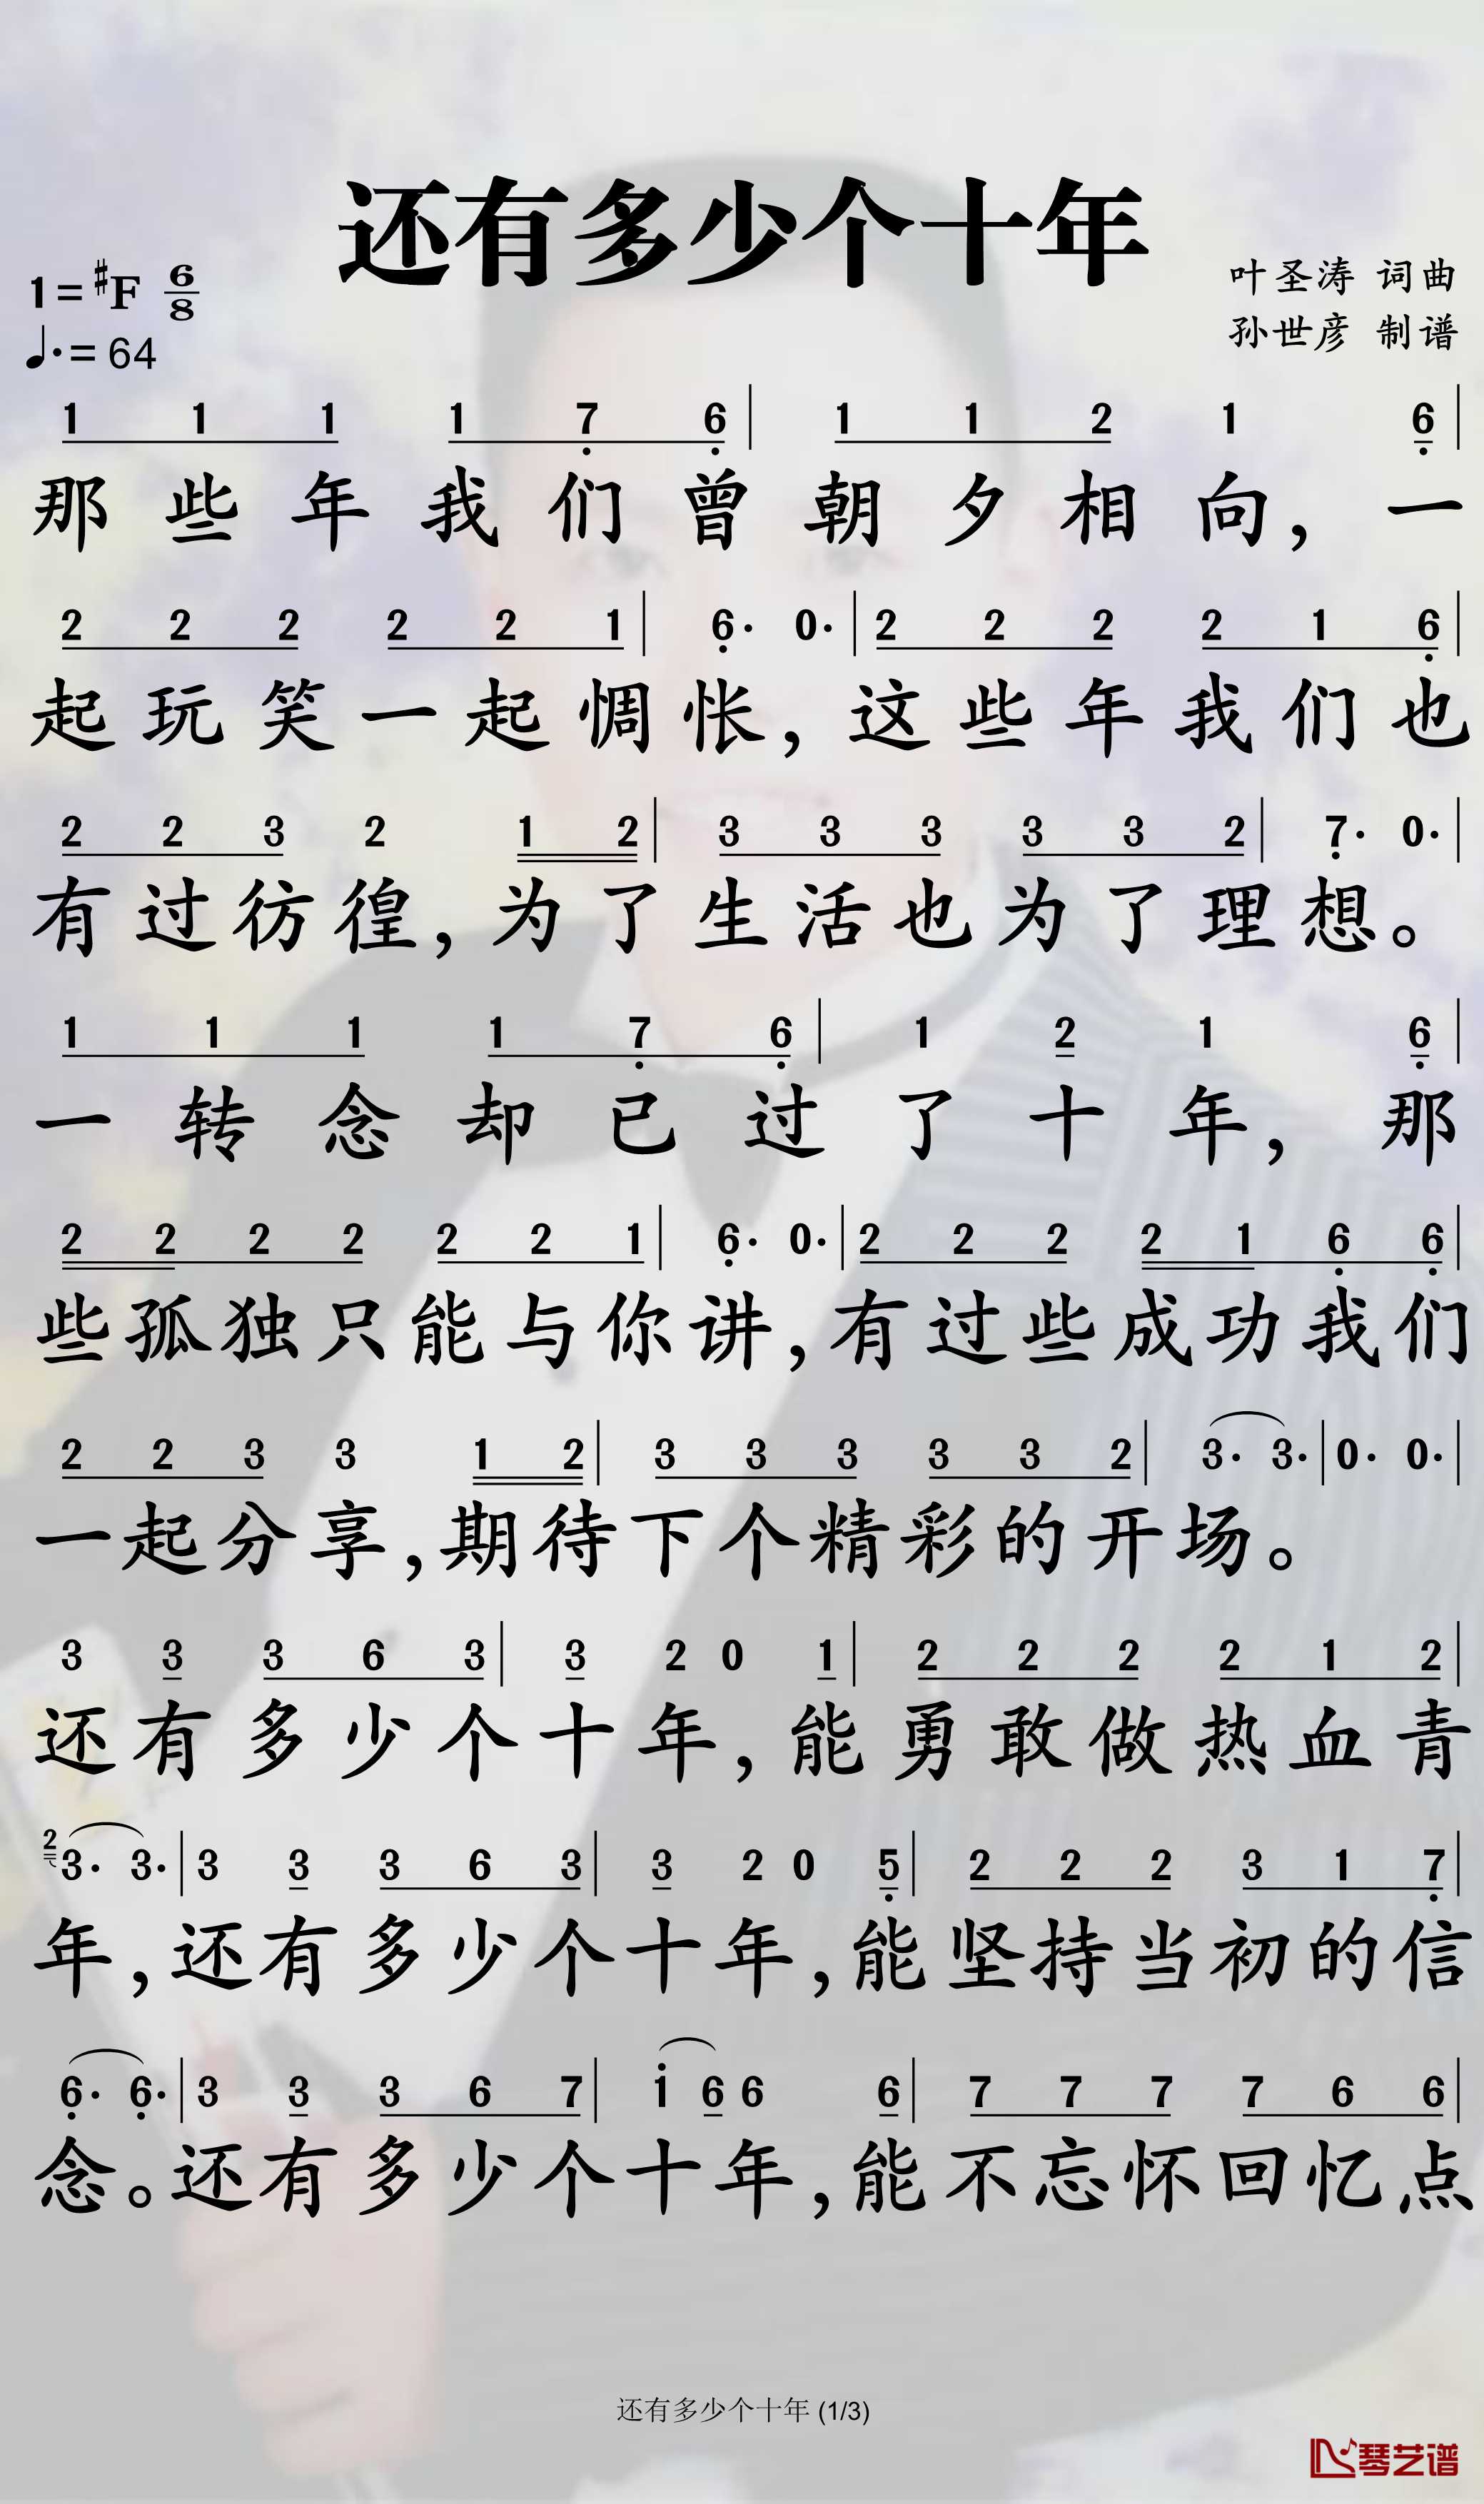 还有多少个十年
1=#F 6/8
♩.=64
叶圣涛 词曲
孙世彦 制谱
1 1 1 1 7̣ 6̣ | 1 1 2 1 6̣ |
那些年我们曾朝夕相向，一
2 2 2 2 2 1 | 6̣· 0· | 2 2 2 2 1 6̣ |
起玩笑一起惆怅，这些年我们也
2 2 3 2 1 2 | 3 3 3 3 3 2 | 7̣· 0· |
有过彷徨，为了生活也为了理想。
1 1 1 1 7̣ 6̣ | 1 2 1 6̣ |
一转念却已过了十年，那
2 2 2 2 2 2 1 | 6̣· 0· | 2 2 2 2 1 6̣ 6̣ |
些孤独只能与你讲，有过些成功我们
2 2 3 3 1 2 | 3 3 3 3 3 2 | 3· 3· | 0· 0· |
一起分享，期待下个精彩的开场。
3 3 3 6 3 | 3 2 0 1 | 2 2 2 2 1 2 |
还有多少个十年，能勇敢做热血青
2 3· 3· | 3 3 3 6 3 | 3 2 0 5̣ | 2 2 2 3 1 7̣ |
年，还有多少个十年，能坚持当初的信
6̣· 6̣· | 3 3 3 6 7 | 1̇ 6 6 6 | 7 7 7 7 6 6 |
念。还有多少个十年，能不忘怀回忆点
还有多少个十年 (1/3)
琴艺谱